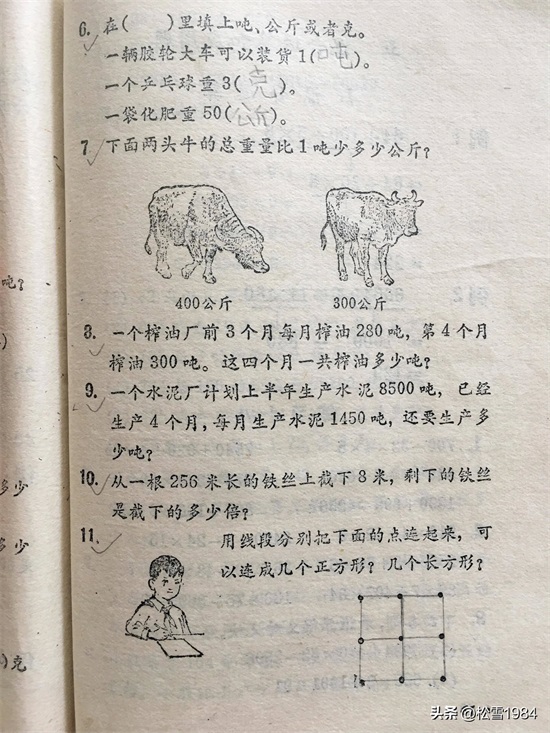 6. 在(　　)里填上吨、公斤或者克。
一辆胶轮大车可以装货1(吨)。
一个乒乓球重3(克)。
一袋化肥重50(公斤)。
7. 下面两头牛的总重量比1吨少多少公斤?
400公斤　300公斤
8. 一个榨油厂前3个月每月榨油280吨，第4个月
榨油300吨。这四个月一共榨油多少吨?
9. 一个水泥厂计划上半年生产水泥8500吨，已经
生产4个月，每月生产水泥1450吨，还要生产多
少吨?
10. 从一根256米长的铁丝上截下8米，剩下的铁丝
是截下的多少倍?
11. 用线段分别把下面的点连起来，可
以连成几个正方形? 几个长方形?
吨?
)
多少
多少
)克
头条 @松雪1984